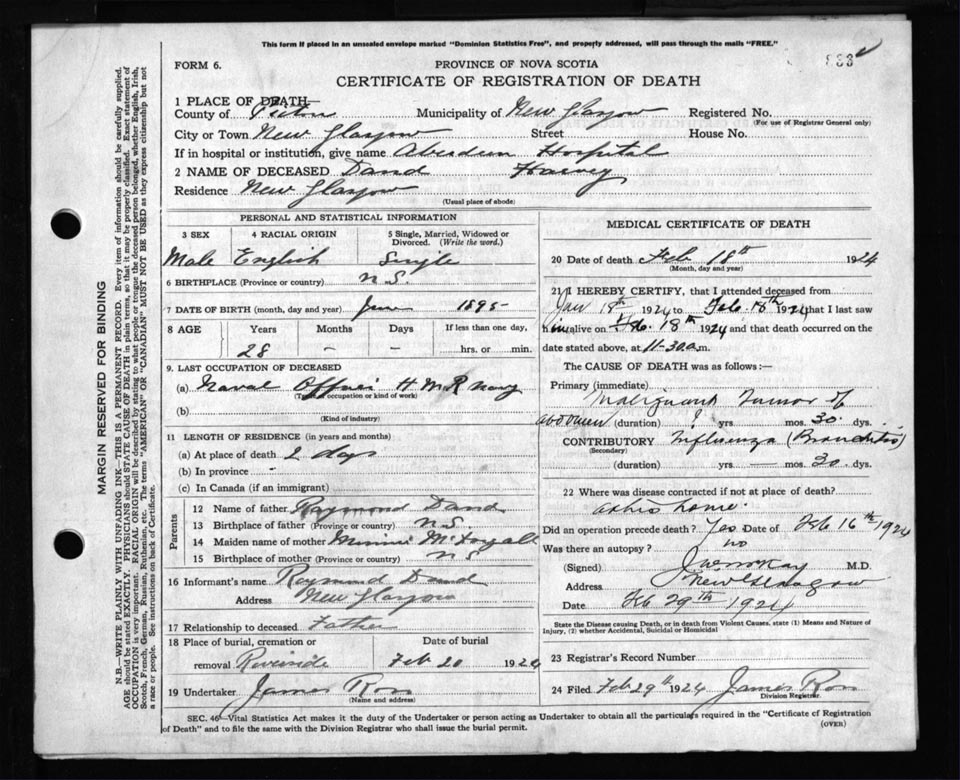 This form if placed in an unsealed envelope marked "Dominion Statistics Free", and properly addressed, will pass through the mails "FREE."
FORM 6.
PROVINCE OF NOVA SCOTIA
CERTIFICATE OF REGISTRATION OF DEATH
1 PLACE OF DEATH—
County of Pictou Municipality of New Glasgow Registered No.
(For use of Registrar General only)
City or Town New Glasgow Street House No.
If in hospital or institution, give name Aberdeen Hospital
2 NAME OF DECEASED Dand Harvey
Residence New Glasgow
(Usual place of abode)
PERSONAL AND STATISTICAL INFORMATION
3 SEX 4 RACIAL ORIGIN 5 Single, Married, Widowed or Divorced. (Write the word.)
Male English Single
6 BIRTHPLACE (Province or country) N.S.
7 DATE OF BIRTH (month, day and year) 1895
8 AGE Years Months Days If less than one day,
28 – – hrs. or min.
9. LAST OCCUPATION OF DECEASED
(a) Naval H. M. R Navy
(Trade, occupation or kind of work)
(b)
(Kind of industry)
11 LENGTH OF RESIDENCE (in years and months)
(a) At place of death 2 days
(b) In province -
(c) In Canada (if an immigrant)
Parents
12 Name of father Raymond Dand
13 Birthplace of father (Province or country) N.S.
14 Maiden name of mother Minnie
15 Birthplace of mother (Province or country) N S
16 Informant's name Raymond Dand
Address New Glasgow
17 Relationship to deceased Father
18 Place of burial, cremation or removal Riverside Date of burial Feb 20 1924
19 Undertaker James Ross
(Name and address)
MEDICAL CERTIFICATE OF DEATH
20 Date of death Feb 18th 1924
(Month, day and year)
21 I HEREBY CERTIFY, that I attended deceased from
Jan 18th 1924 to Feb. 18th 1924 that I last saw
him alive on Feb. 18th 1924 and that death occurred on
date stated above, at 11-30 a.m.
The CAUSE OF DEATH was as follows:—
Primary (immediate)
Malignant Tumor of
abdomen (duration) ? yrs. mos. 30 dys.
CONTRIBUTORY Influenza (Bronchitis)
(Secondary)
(duration) yrs. — mos. 30 dys.
22 Where was disease contracted if not at place of death?
at his home.
Did an operation precede death? Yes Date of Feb 16th 1924
Was there an autopsy? no
(Signed) M.D.
Address New Glasgow
Date Feb 29th 1924
State the Disease causing Death, or in death from Violent Causes, state (1) Means and Nature of Injury, (2) whether Accidental, Suicidal or Homicidal
23 Registrar's Record Number
24 Filed Feb 29th 1924 James Ross
Division Registrar.
SEC. 46—Vital Statistics Act makes it the duty of the Undertaker or person acting as Undertaker to obtain all the particulars required in the "Certificate of Registration
of Death" and to file the same with the Division Registrar who shall issue the burial permit.
(OVER)
MARGIN RESERVED FOR BINDING
N.B.—WRITE PLAINLY WITH UNFADING INK—THIS IS A PERMANENT RECORD. Every item of information should be carefully supplied.
AGE should be stated EXACTLY. PHYSICIANS should STATE CAUSE OF DEATH in plain terms, so that it may be properly classified. Exact statement of
OCCUPATION is very important. RACIAL ORIGIN will be described by stating to what people or tongue the deceased person belonged, whether English, Irish,
Scotch, French, German, Russian, Ruthenian, etc. The terms "AMERICAN" or "CANADIAN" MUST NOT BE USED as they express citizenship but not
a race or people. See instructions on back of Certificate.